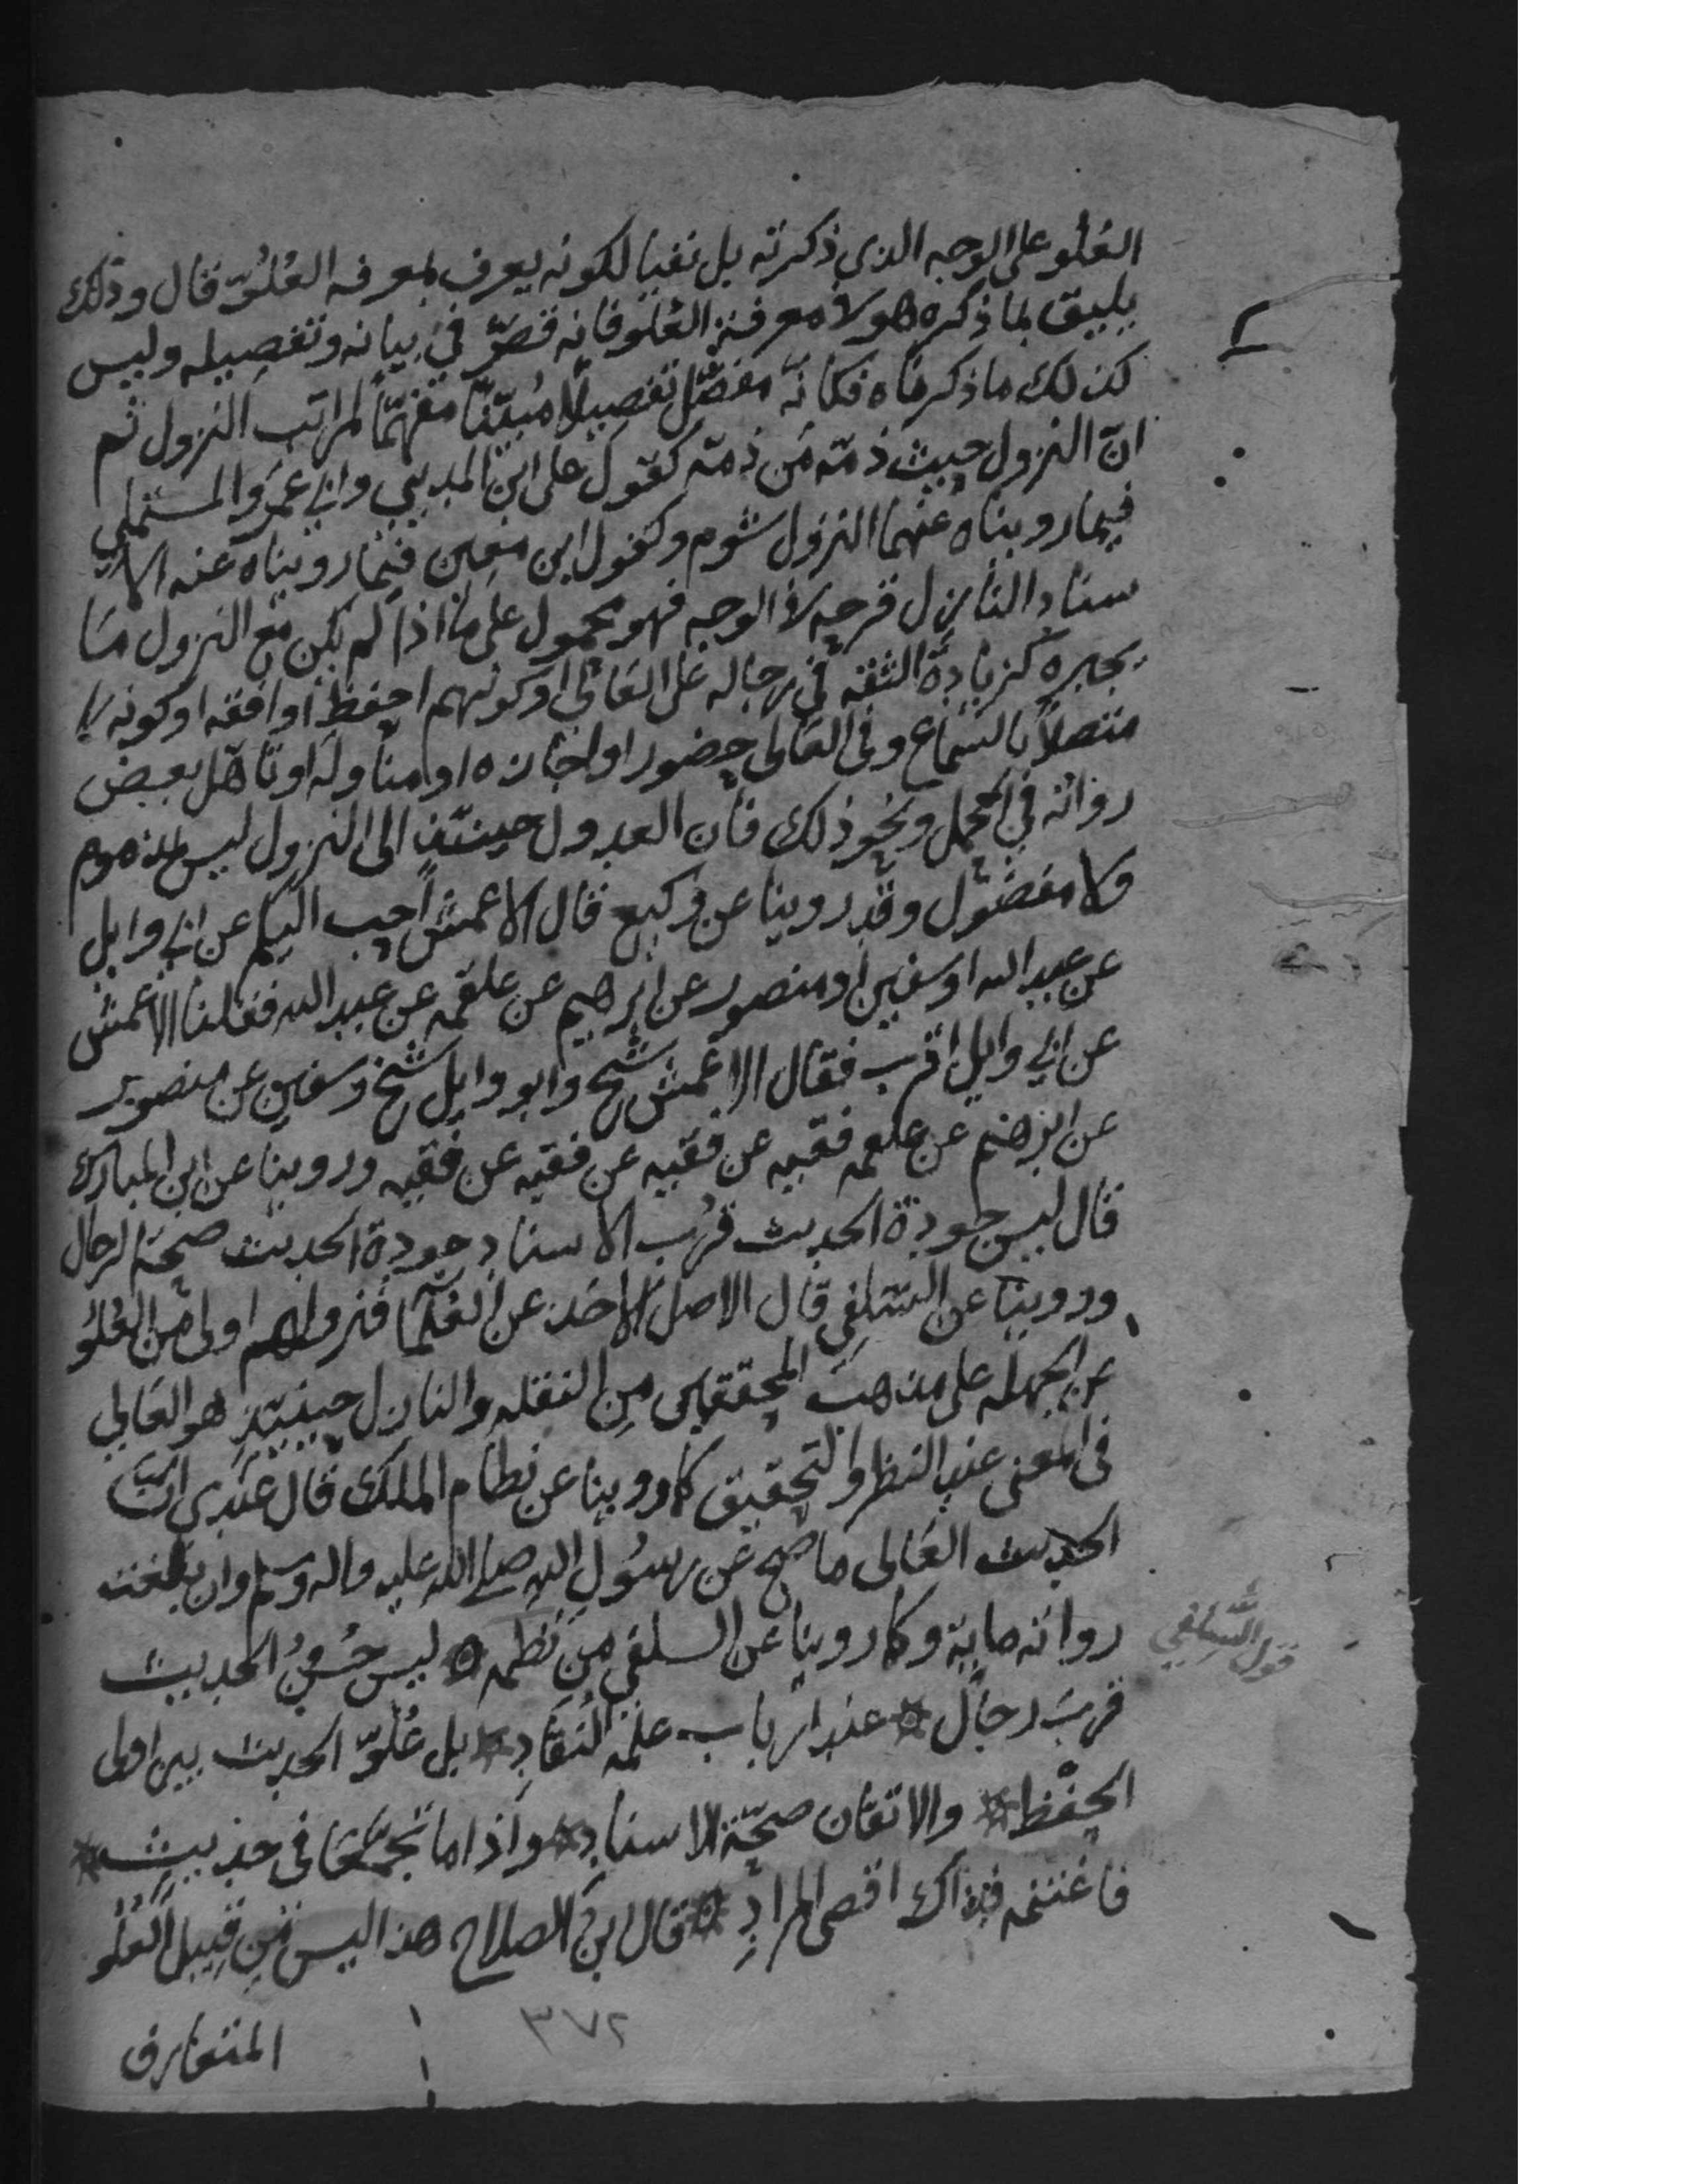 العُلو على الوجه الذي ذكرته بل نفيا لكونه يعرف بمعرفه العُلُوّ قال وذلك
يليق بما ذكره هولا معرفة العُلو فانه قصّر في بيانه وتفصيله وليس
كذلك ما ذكرناه فكانه مفصّل تفصيلًا مُبيّنًا مفهّمًا لمراتب النزول ثم
انّ النزول حيث ذمّه من ذمّه كقول على ابن المديني وابي عمرو المستملي
فيما رويناه عنهما النزول شوم وكقول ابن معين فيما رويناه عنه الا
سناد النازل قرحه في الوجه فهو محمول على ما اذا لم يكن مع النزول ما
يجبره كزيادة الثقه في رجاله على العالي او كونهم احفظ او افقه او كونه
متصلاً بالسماع وفي العالى حضور او اجازه او مناوله او تساهل بعض
رواته في الحمل ونحو ذلك فان العدول حينئذٍ الى النزول ليس بمذموم
ولا مفضول وقد روينا عن وكيع قال الاعمش احب اليكم عن ابي وايل
عن عبد الله او سفين او منصور عن ابرهيم عن علقمه عن عبد الله فقلنا الاعمش
عن ابي وايل اقرب فقال الاعمش شيخ وابو وايل شيخ وسفين عن منصور
عن ابرهيم عن علقمه فقيه عن فقيه عن فقيه عن فقيه وروينا عن ابن المبارك
قال ليس جودة الحديث قرب الاسناد جودة الحديث صحة الرجال
وروينا عن السّلفي قال الاصل الاخذ عن العلما فنزولهم اولى من العُلُو
عن الجهله على مذهب المحققين من النقله والنازل حينئذٍ هو العالي
في المعنى عند النظر والتحقيق كما روينا عن نظام الملك قال عندي انّ
الحديث العالى ما صح عن رسول الله صلى الله عليه واله وسلم وان بلغت
رواته مايه وكما روينا عن السلفي من نظمه ۞ ليس حُسْنُ الحديث
قربَ رجال * عند ارباب علمه النقاد * بل عُلوّ الحديث بين اولى
الحفْظ * والاتقان صحّة الاسناد * واذا ما تجمّعا في حديث *
فاغتنمه فذاك اقصى المرادِ ۞ قال ابن الصلاح هذا ليس من قبيل العُلُو
المتعارف
قول السّلفي
٣٧٢